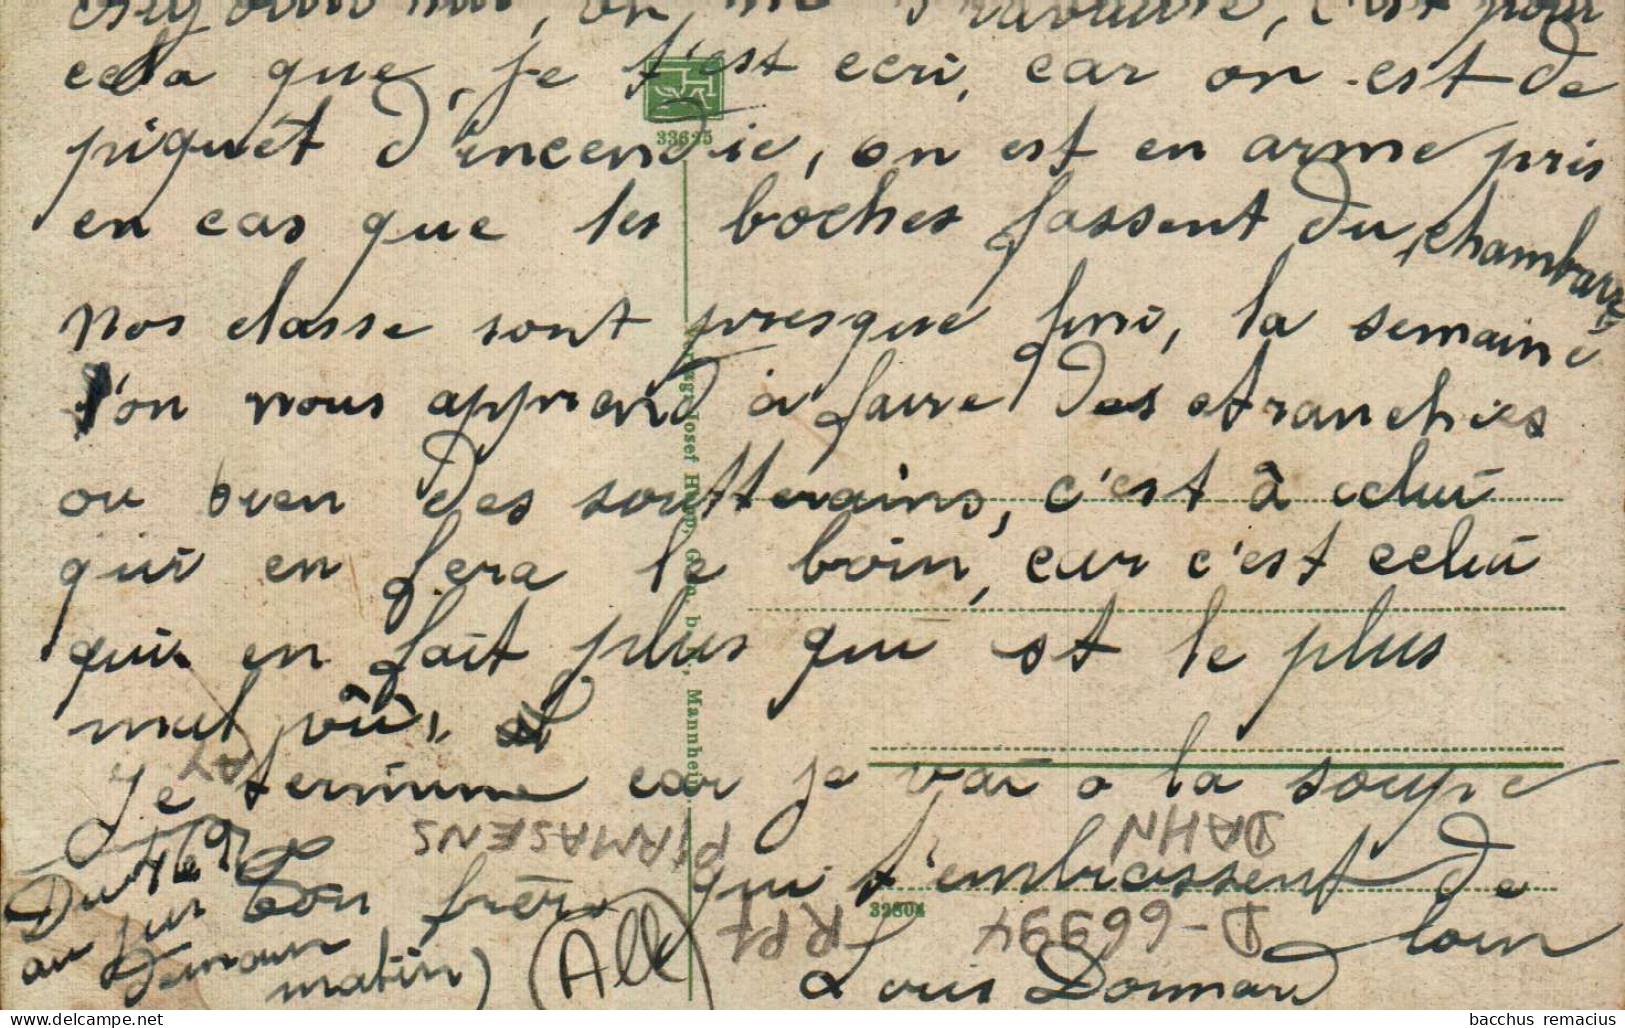 on me c'est pour
cela que, je t'est ecri, car on est de
piquêt d'incendie, on est en arme pris
en cas que les boches fassent du chambard
Nos classe sont presque fini, la semaine
l'on nous apprend à faire des
ou bien des soutterains, c'est à celui
qui en fera le boin, car c'est celui
qui en fait plus qui est le plus
mal
Je termine car je vai a la soupe
Ton frère qui t'embrassent de
loin
Louis Donnard
Du
au
demain
matin)
(All)
33695
Verlag: Josef Mannheim
32304
AY
PIRMASENS
DAHN
RPf
D-66994
bacchus remacius